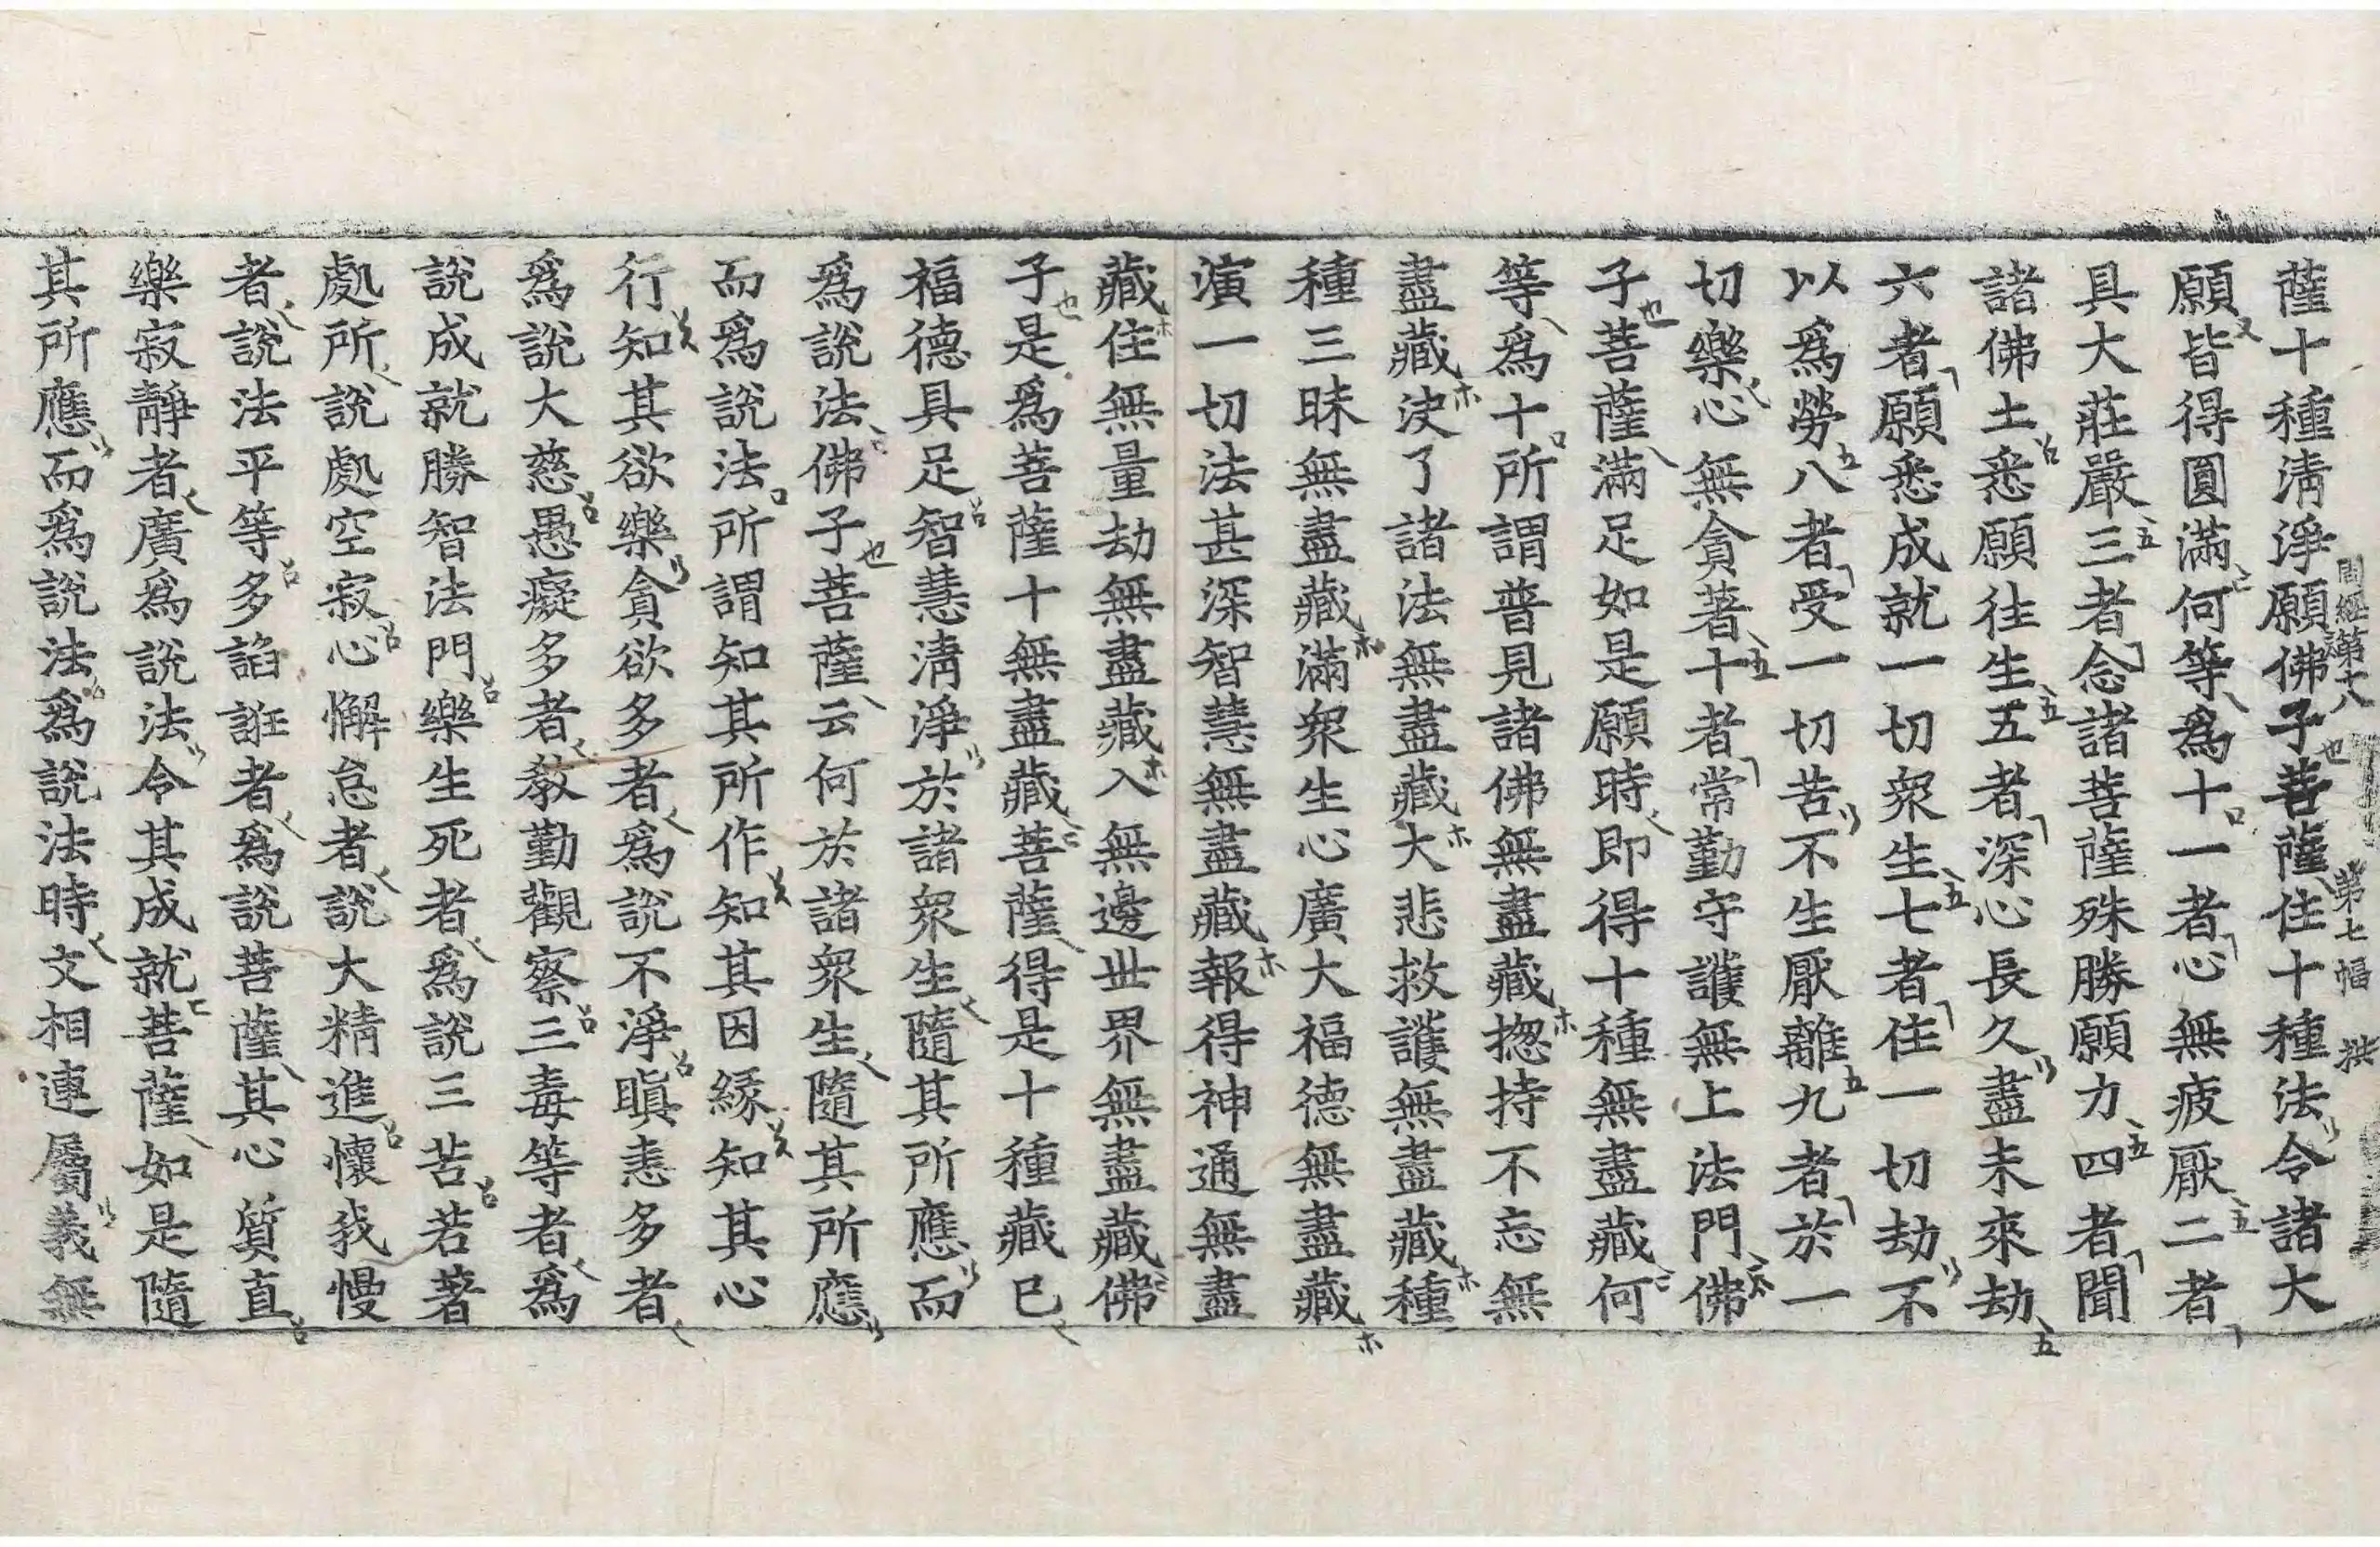 薩十種清淨願佛子菩薩住十種法令諸大
願皆得圓滿何等為十一者心無疲厭二者
具大莊嚴三者念諸菩薩殊勝願力四者聞
諸佛土悉願往生五者深心長久盡未來劫
六者願悉成就一切眾生七者住一切劫不
以為勞八者受一切苦不生厭離九者於一
切樂心無貪著十者常勤守護無上法門佛
子菩薩滿足如是願時即得十種無盡藏何
等為十所謂普見諸佛無盡藏揔持不忘無
盡藏決了諸法無盡藏大悲救護無盡藏種
種三昧無盡藏滿眾生心廣大福德無盡藏
演一切法甚深智慧無盡藏報得神通無盡
藏住無量劫無盡藏入無邊世界無盡藏佛
子是為菩薩十無盡藏菩薩得是十種藏已
福德具足智慧清淨於諸眾生隨其所應而
為說法佛子菩薩云何於諸眾生隨其所應
而為說法所謂知其所作知其因緣知其心
行知其欲樂貪欲多者為說不淨瞋恚多者
為說大慈愚癡多者教勤觀察三毒等者為
說成就勝智法門樂生死者為說三苦若著
處所說處空寂心懈怠者說大精進懷我慢
者說法平等多諂誑者為說菩薩其心質直
樂寂靜者廣為說法令其成就菩薩如是隨
其所應而為說法為說法時文相連屬義無
第十八
第七幅